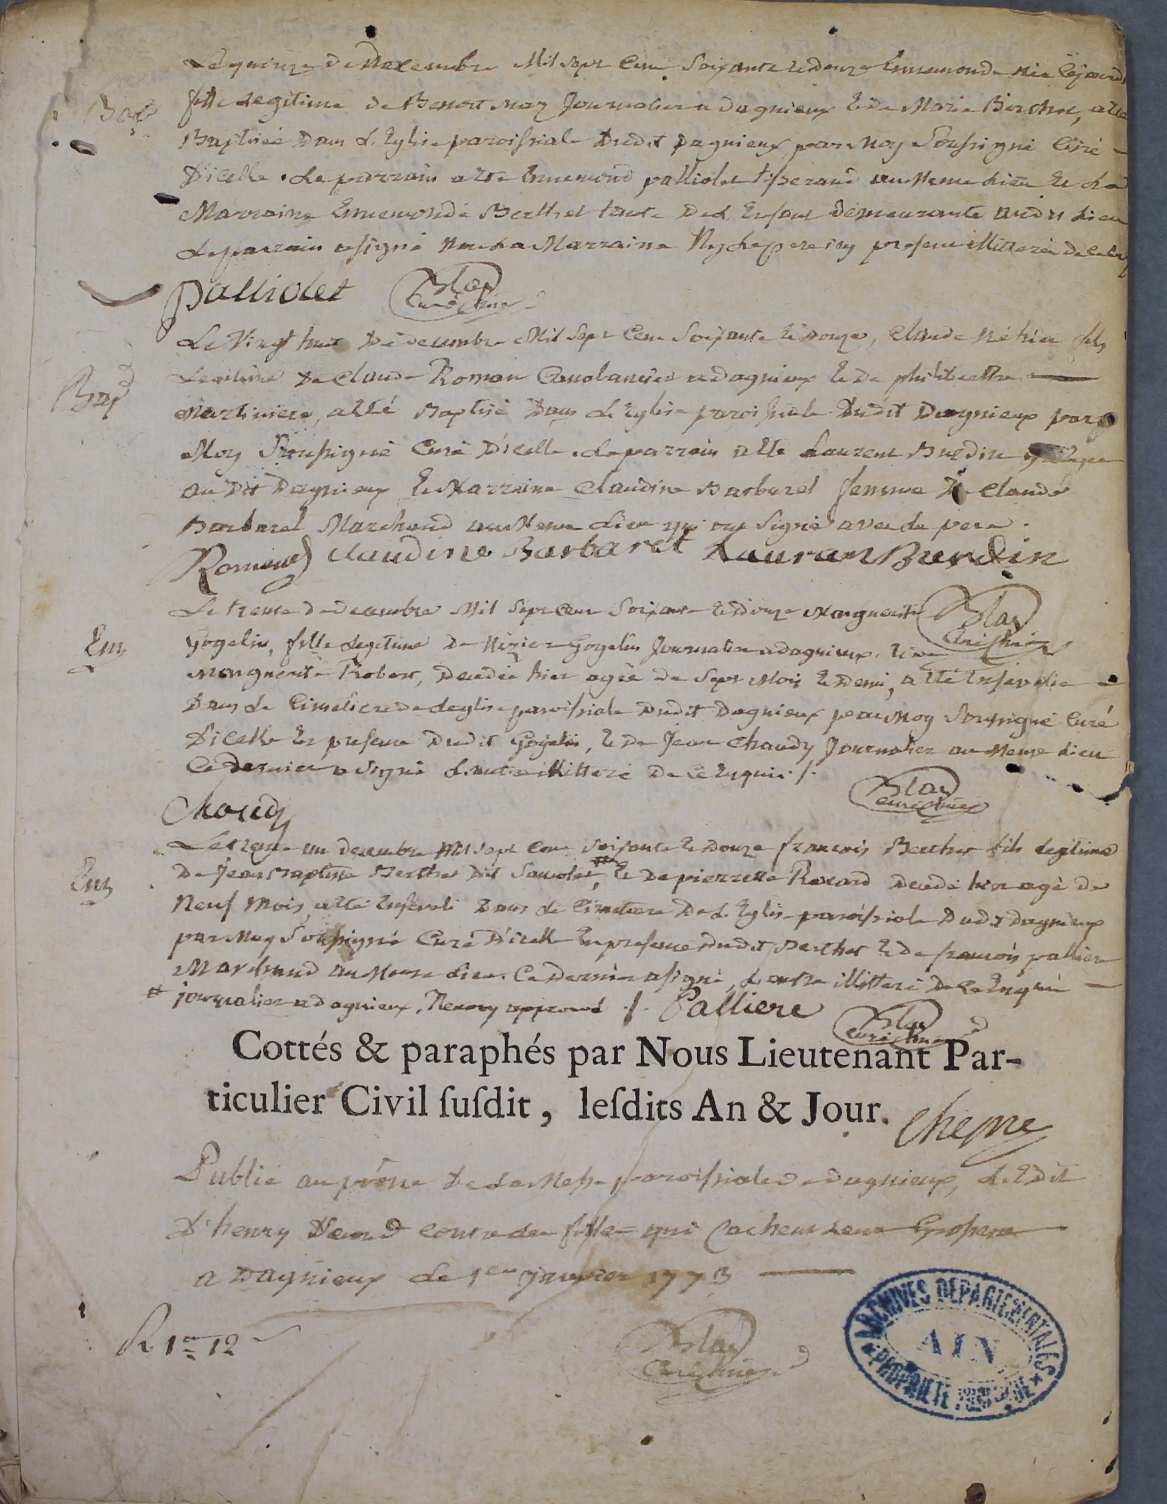 Le quinze De Decembre Mil Sept Cent Soixante et douze Ennemonde née Cejourd
Bap
fille Legitime de Benoit may Journalier a dagnieux et de Marie Berthet, a été
Baptisée Dans L'Eglise paroissiale Dudit Dagnieux par Moy Soussigné Curé
D'icelle. Le parrain a été Ennemond palliolet tisserand au Meme Lieu et La
Marraine Ennemonde Berthet tante De L'Enfant demeurante audit Lieu
Le parrain a signé Non La Marraine Ny Le pere icy present illitterés de ce
Palliolet Blay curé
Le Vingt huit De decembre Mil Sept Cent Soixante et douze, Claude Né hier fils
Bap
Legitime De Claude Roman a dagnieux et de philiberthe
Martiniere, a été Baptisé Dans L'Eglise paroissiale Dudit Dagnieux par
Moy Soussigné Curé D'icelle. Le parrain a été Laurent Burdin
au Dit Dagnieux et La Marraine Claudine Barbaret femme De Claude
Barbaret Marchand au Meme Lieu qui ont Signé avec Le pere.
Claudine Barbaret Lauran Burdin
Le trente de decembre Mil Sept Cent Soixante et Douze Marguerite
Blay curé
Ent
Gogelin, fille Legitime De Nizier Gogelin Journalier a dagnieux et de
Marguerite Robert, Decedée hier agée de Sept Mois et Demi, a été Ensevelie
Dans Le Cimetiere de L'eglise paroissiale Dudit Dagnieux par Moy Soussigné Curé
D'icelle En presence Dudit Gogelin, et De Jean Chaudy Journalier au Meme Lieu
Ce dernier a Signé L'autre illitteré De ce Enquis ./.
Blay curé
Chaudy
Le trente un decembre Mil Sept Cent Soixante et Douze françois Berthet fils Legitime
De Jean Baptiste Berthet Dit #, et De pierrette Ravard Decedé hier agé De
Ent
Neuf Mois, a été Enseveli Dans Le Cimetiere De L'Eglise paroissiale Dudit Dagnieux
par Moy Soussigné Curé D'icelle En presence Dudit Berthet et De françois palliere
Marchand au Meme Lieu. Ce Dernier a signé, L'autre illitteré De ce Enquis
# journalier a dagnieux, Renvoy approuvé ./. Palliere
Blay curé
Cottés & paraphés par Nous Lieutenant Par-
ticulier Civil ſuſdit, leſdits An & Jour.
Publié au prône De La Messe paroissiale De dagnieux, L'Edit
D'henry Second contre Les filles qui Cachent Leur Grossesse
a Dagnieux Le 1er janvier 1773
R 1er 12
Blay curé
ARCHIVES DEPARTEMENTALES
AIN
PROPRIETE PUBLIQUE